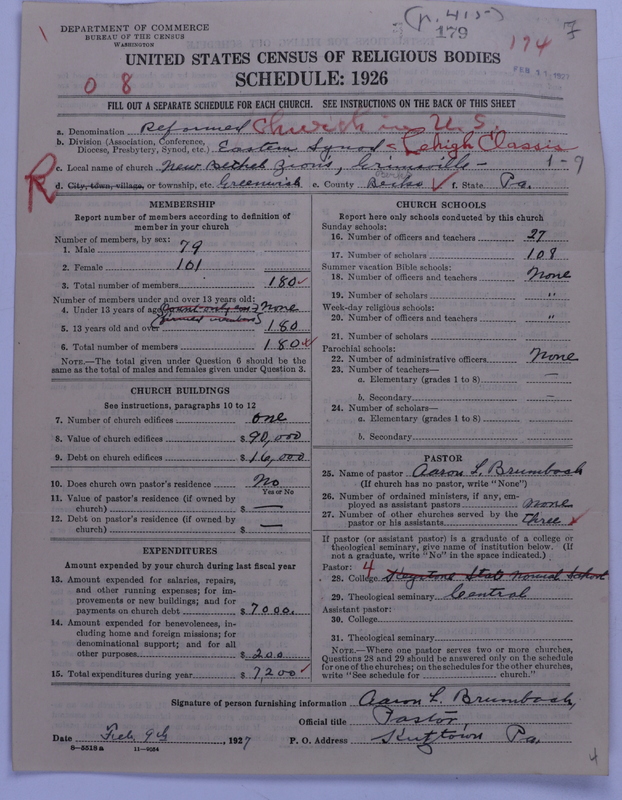 (p. 415)
179
194
7
DEPARTMENT OF COMMERCE
BUREAU OF THE CENSUS
WASHINGTON
FEB 11 1927
UNITED STATES CENSUS OF RELIGIOUS BODIES
SCHEDULE: 1926
0 8
FILL OUT A SEPARATE SCHEDULE FOR EACH CHURCH. SEE INSTRUCTIONS ON THE BACK OF THIS SHEET
a. Denomination Reformed Church in U.S.
b. Division (Association, Conference, Diocese, Presbytery, Synod, etc.) Eastern Synod Lehigh Classis
c. Local name of church New Bethel Zion's, Grimsville - 1-9
R
d. City, town, village, or township, etc. Greenwich e. County Berks f. State Pa.
MEMBERSHIP
Report number of members according to definition of
member in your church
Number of members, by sex:
1. Male 79
2. Female 101
3. Total number of members 180
Number of members under and over 13 years old:
4. Under 13 years of age None
5. 13 years old and over 180
6. Total number of members 180
NOTE.—The total given under Question 6 should be the
same as the total of males and females given under Question 3.
CHURCH BUILDINGS
See instructions, paragraphs 10 to 12
7. Number of church edifices one
8. Value of church edifices $ 90,000
9. Debt on church edifices $ 16,000
10. Does church own pastor's residence No
Yes or No
11. Value of pastor's residence (if owned by
church) $ —
12. Debt on pastor's residence (if owned by
church) $ —
EXPENDITURES
Amount expended by your church during last fiscal year
13. Amount expended for salaries, repairs,
and other running expenses; for im-
provements or new buildings; and for
payments on church debt $ 7000.
14. Amount expended for benevolences, in-
cluding home and foreign missions; for
denominational support; and for all
other purposes $ 200
15. Total expenditures during year $ 7,200
CHURCH SCHOOLS
Report here only schools conducted by this church
Sunday schools:
16. Number of officers and teachers 27
17. Number of scholars 108
Summer vacation Bible schools:
18. Number of officers and teachers None
19. Number of scholars "
Week-day religious schools:
20. Number of officers and teachers "
21. Number of scholars
Parochial schools:
22. Number of administrative officers None
23. Number of teachers—
a. Elementary (grades 1 to 8) —
b. Secondary —
24. Number of scholars—
a. Elementary (grades 1 to 8)
b. Secondary
PASTOR
25. Name of pastor Aaron L. Brumbach
(If church has no pastor, write "None")
26. Number of ordained ministers, if any, em-
ployed as assistant pastors none
27. Number of other churches served by the
pastor or his assistants three
If pastor (or assistant pastor) is a graduate of a college or
theological seminary, give name of institution below. (If
not a graduate, write "No" in the space indicated.)
Pastor: 4
28. College Keystone State Normal School
29. Theological seminary Central
Assistant pastor:
30. College
31. Theological seminary
NOTE.—Where one pastor serves two or more churches,
Questions 28 and 29 should be answered only on the schedule
for one of the churches; on the schedules for the other churches,
write "See schedule for church."
Signature of person furnishing information Aaron L. Brumbach,
Official title Pastor,
Date Feb. 9th, 1927 P. O. Address Kutztown Pa.
8—5518a 11—9054
4